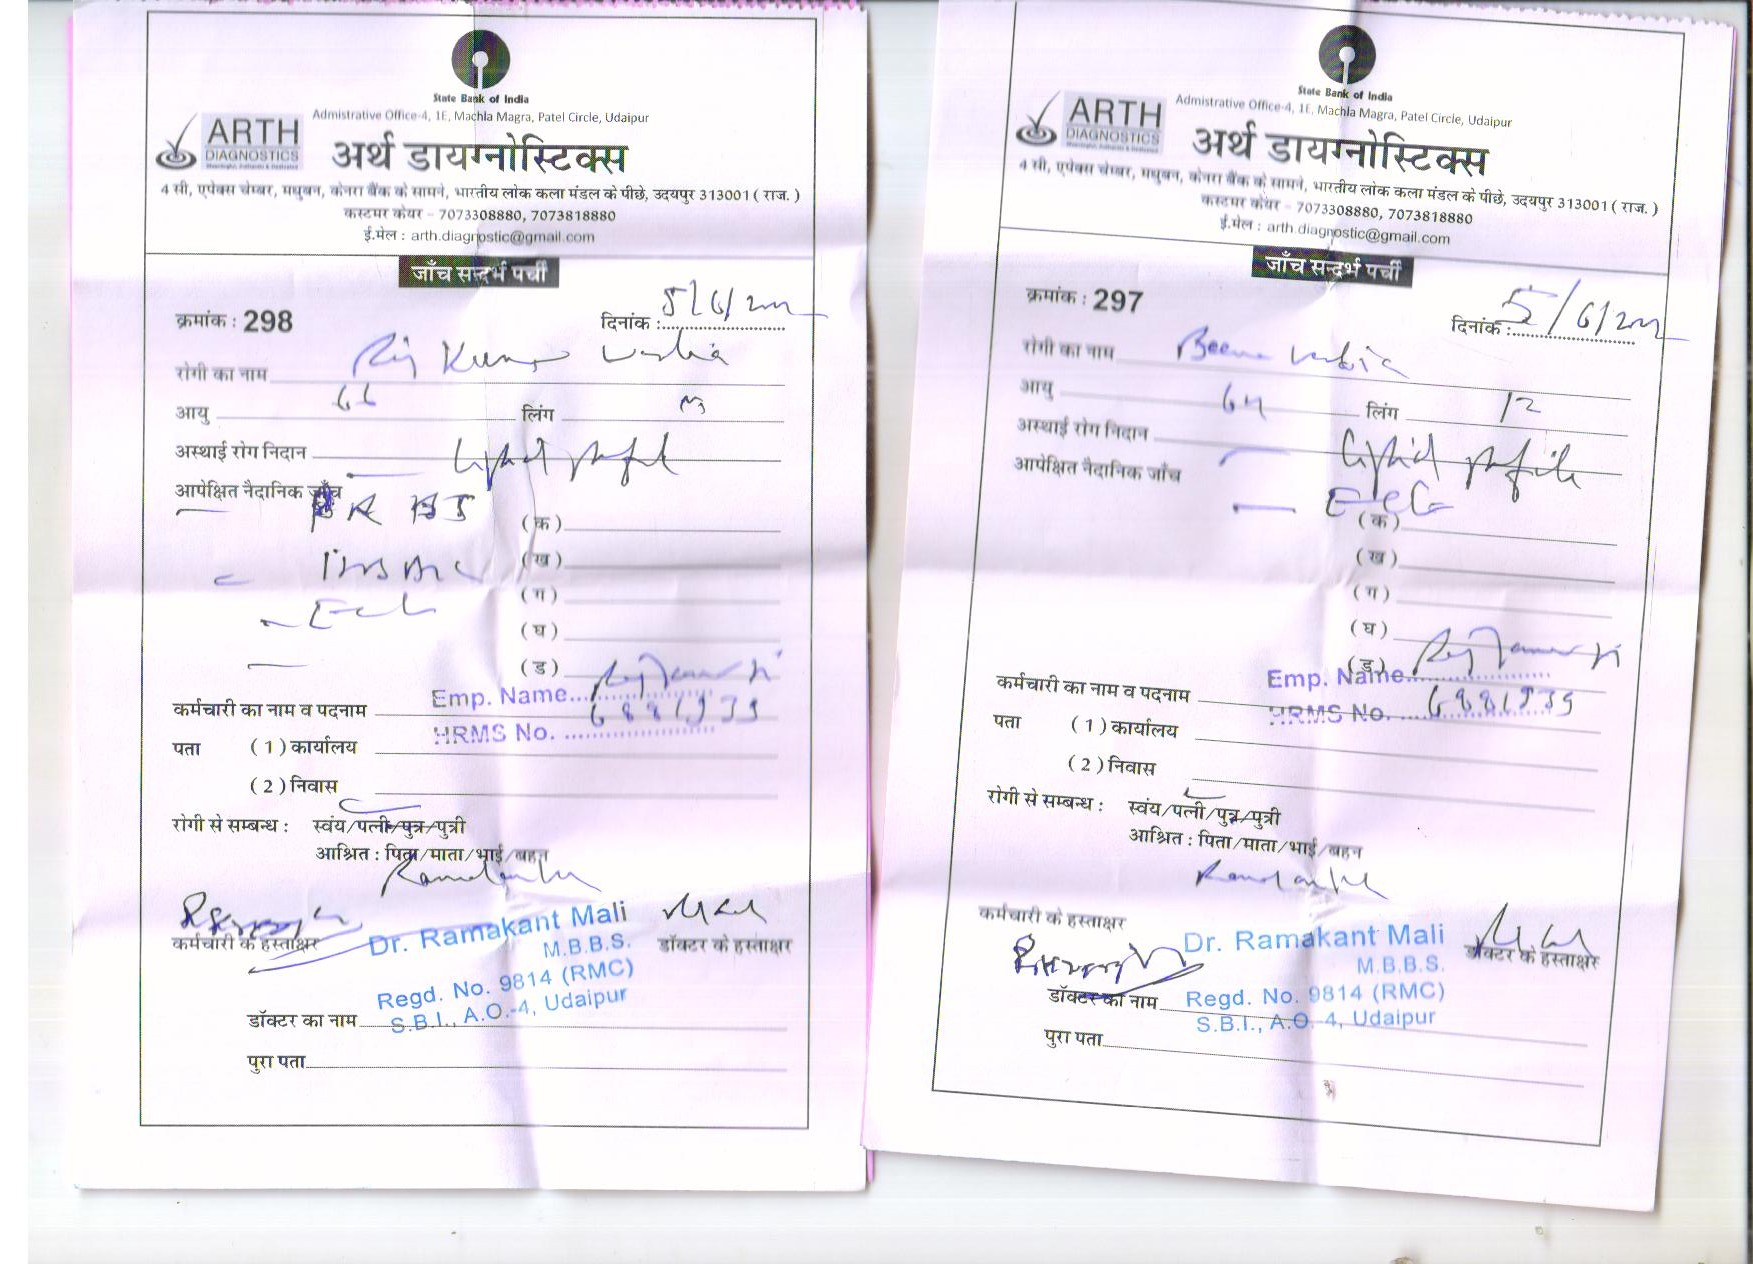 State Bank of India
Admistrative Office-4, 1E, Machla Magra, Patel Circle, Udaipur
ARTH
DIAGNOSTICS
अर्थ डायग्नोस्टिक्स
4 सी, एपेक्स चेम्बर, मधुबन, केनरा बैंक के सामने, भारतीय लोक कला मंडल के पीछे, उदयपुर 313001 ( राज. )
कस्टमर केयर - 7073308880, 7073818880
ई.मेल : arth.diagnostic@gmail.com
जाँच सन्दर्भ पर्ची
क्रमांक : 298
दिनांक : 5/6/
रोगी का नाम Raj Kumar
आयु 66 लिंग M
अस्थाई रोग निदान Lipid profile
आपेक्षित नैदानिक जाँच
(क)
(ख)
(ग)
(घ)
(ड)
Emp. Name
कर्मचारी का नाम व पदनाम
HRMS No. 6881939
पता ( 1 ) कार्यालय
( 2 ) निवास
रोगी से सम्बन्ध : स्वंय/पत्नी/पुत्र/पुत्री
आश्रित : पिता/माता/भाई/बहन
कर्मचारी के हस्ताक्षर
Dr. Ramakant Mali
M.B.B.S.
डॉक्टर के हस्ताक्षर
Regd. No. 9814 (RMC)
S.B.I., A.O.-4, Udaipur
डॉक्टर का नाम
पुरा पता
State Bank of India
Admistrative Office-4, 1E, Machla Magra, Patel Circle, Udaipur
ARTH
DIAGNOSTICS
अर्थ डायग्नोस्टिक्स
4 सी, एपेक्स चेम्बर, मधुबन, केनरा बैंक के सामने, भारतीय लोक कला मंडल के पीछे, उदयपुर 313001 ( राज. )
कस्टमर केयर - 7073308880, 7073818880
ई.मेल : arth.diagnostic@gmail.com
जाँच सन्दर्भ पर्ची
क्रमांक : 297
दिनांक : 5/6/
रोगी का नाम Beena
आयु 64 लिंग
अस्थाई रोग निदान Lipid profile
आपेक्षित नैदानिक जाँच
ECG
(क)
(ख)
(ग)
(घ)
(ड)
Emp. Name
कर्मचारी का नाम व पदनाम
HRMS No. 6881939
पता ( 1 ) कार्यालय
( 2 ) निवास
रोगी से सम्बन्ध : स्वंय/पत्नी/पुत्र/पुत्री
आश्रित : पिता/माता/भाई/बहन
कर्मचारी के हस्ताक्षर
Dr. Ramakant Mali
M.B.B.S.
डॉक्टर के हस्ताक्षर
डॉक्टर का नाम Regd. No. 9814 (RMC)
S.B.I., A.O.-4, Udaipur
पुरा पता